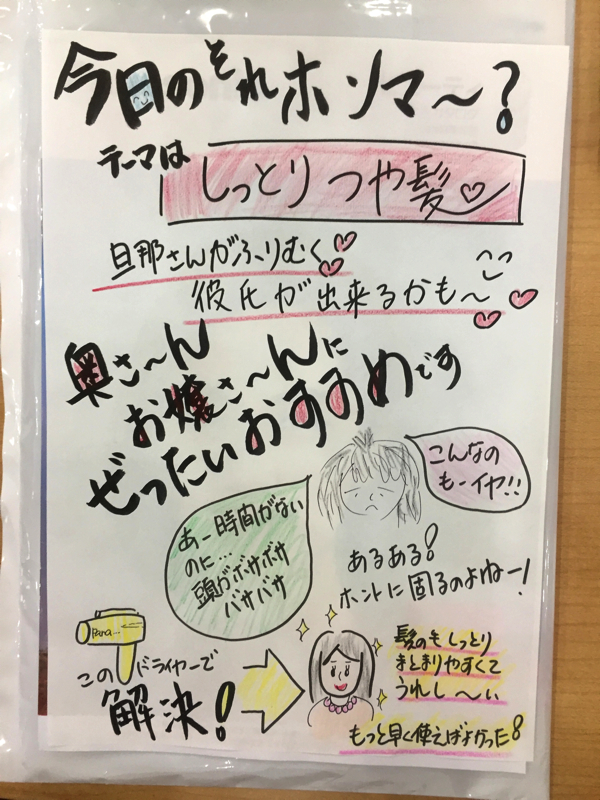 今日のそれホンマ〜?
テーマは
しっとりつや髪
旦那さんがふりむく
彼氏が出来るかも〜
奥さ〜ん
お嬢さ〜んに
ぜったいおすすめです
こんなの
もーイヤ!!
あー時間がない
のに…
頭がボサボサ
バサバサ
あるある!
ホントに固るのよねー!
Pana...
このドライヤーで
解決!
髪のもしっとり
まとまりやすくて
うれし〜い
もっと早く使えばよかった!